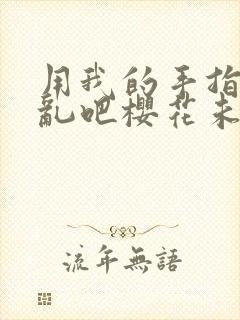 用我的手指
亂吧櫻花未
流年無語